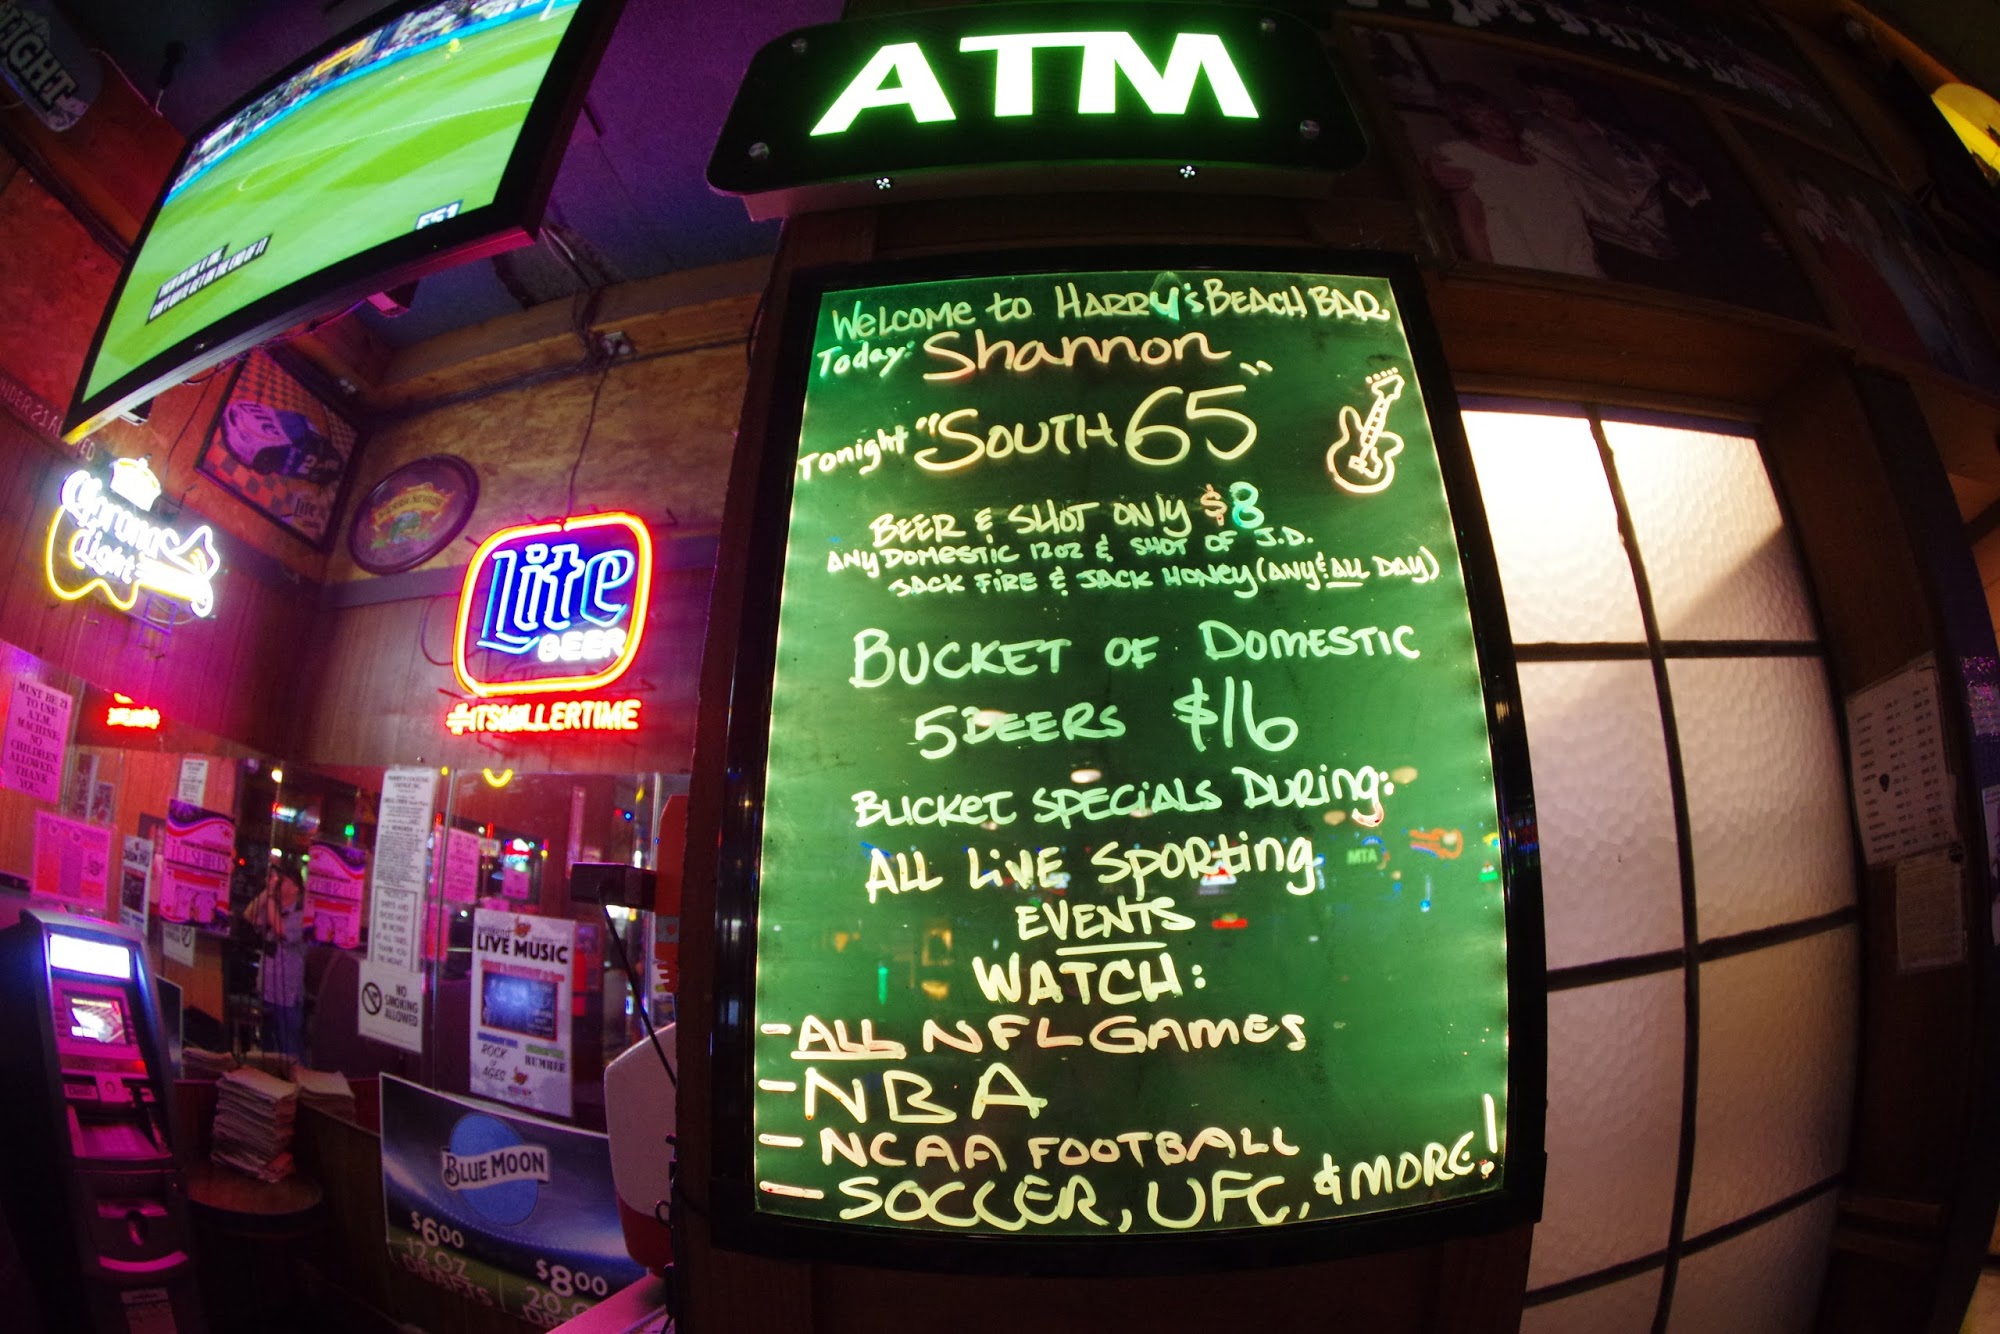 ATM
Welcome to Harry's Beach Bar
Today: Shannon
Tonight "South 65"
Beer & Shot only $8
Any Domestic 12oz & Shot of J.D.
Jack Fire & Jack Honey (Any & All Day)
Bucket of Domestic
5 Beers $16
Bucket Specials During:
All Live Sporting
Events
Watch:
- All NFL Games
- NBA
- NCAA Football
- Soccer, UFC, & More!
FS1
Corona
Light
Lite
BEER
#ITSMILLERTIME
MUST BE 21
TO USE
A.T.M.
MACHINE,
NO
CHILDREN
ALLOWED.
THANK
YOU.
NO
SMOKING
ALLOWED
LIVE MUSIC
ROCK
of
AGES
RUMBLE
BLUE MOON
$6.00
12 OZ
DRAFTS
$8.00
20 O
MTA